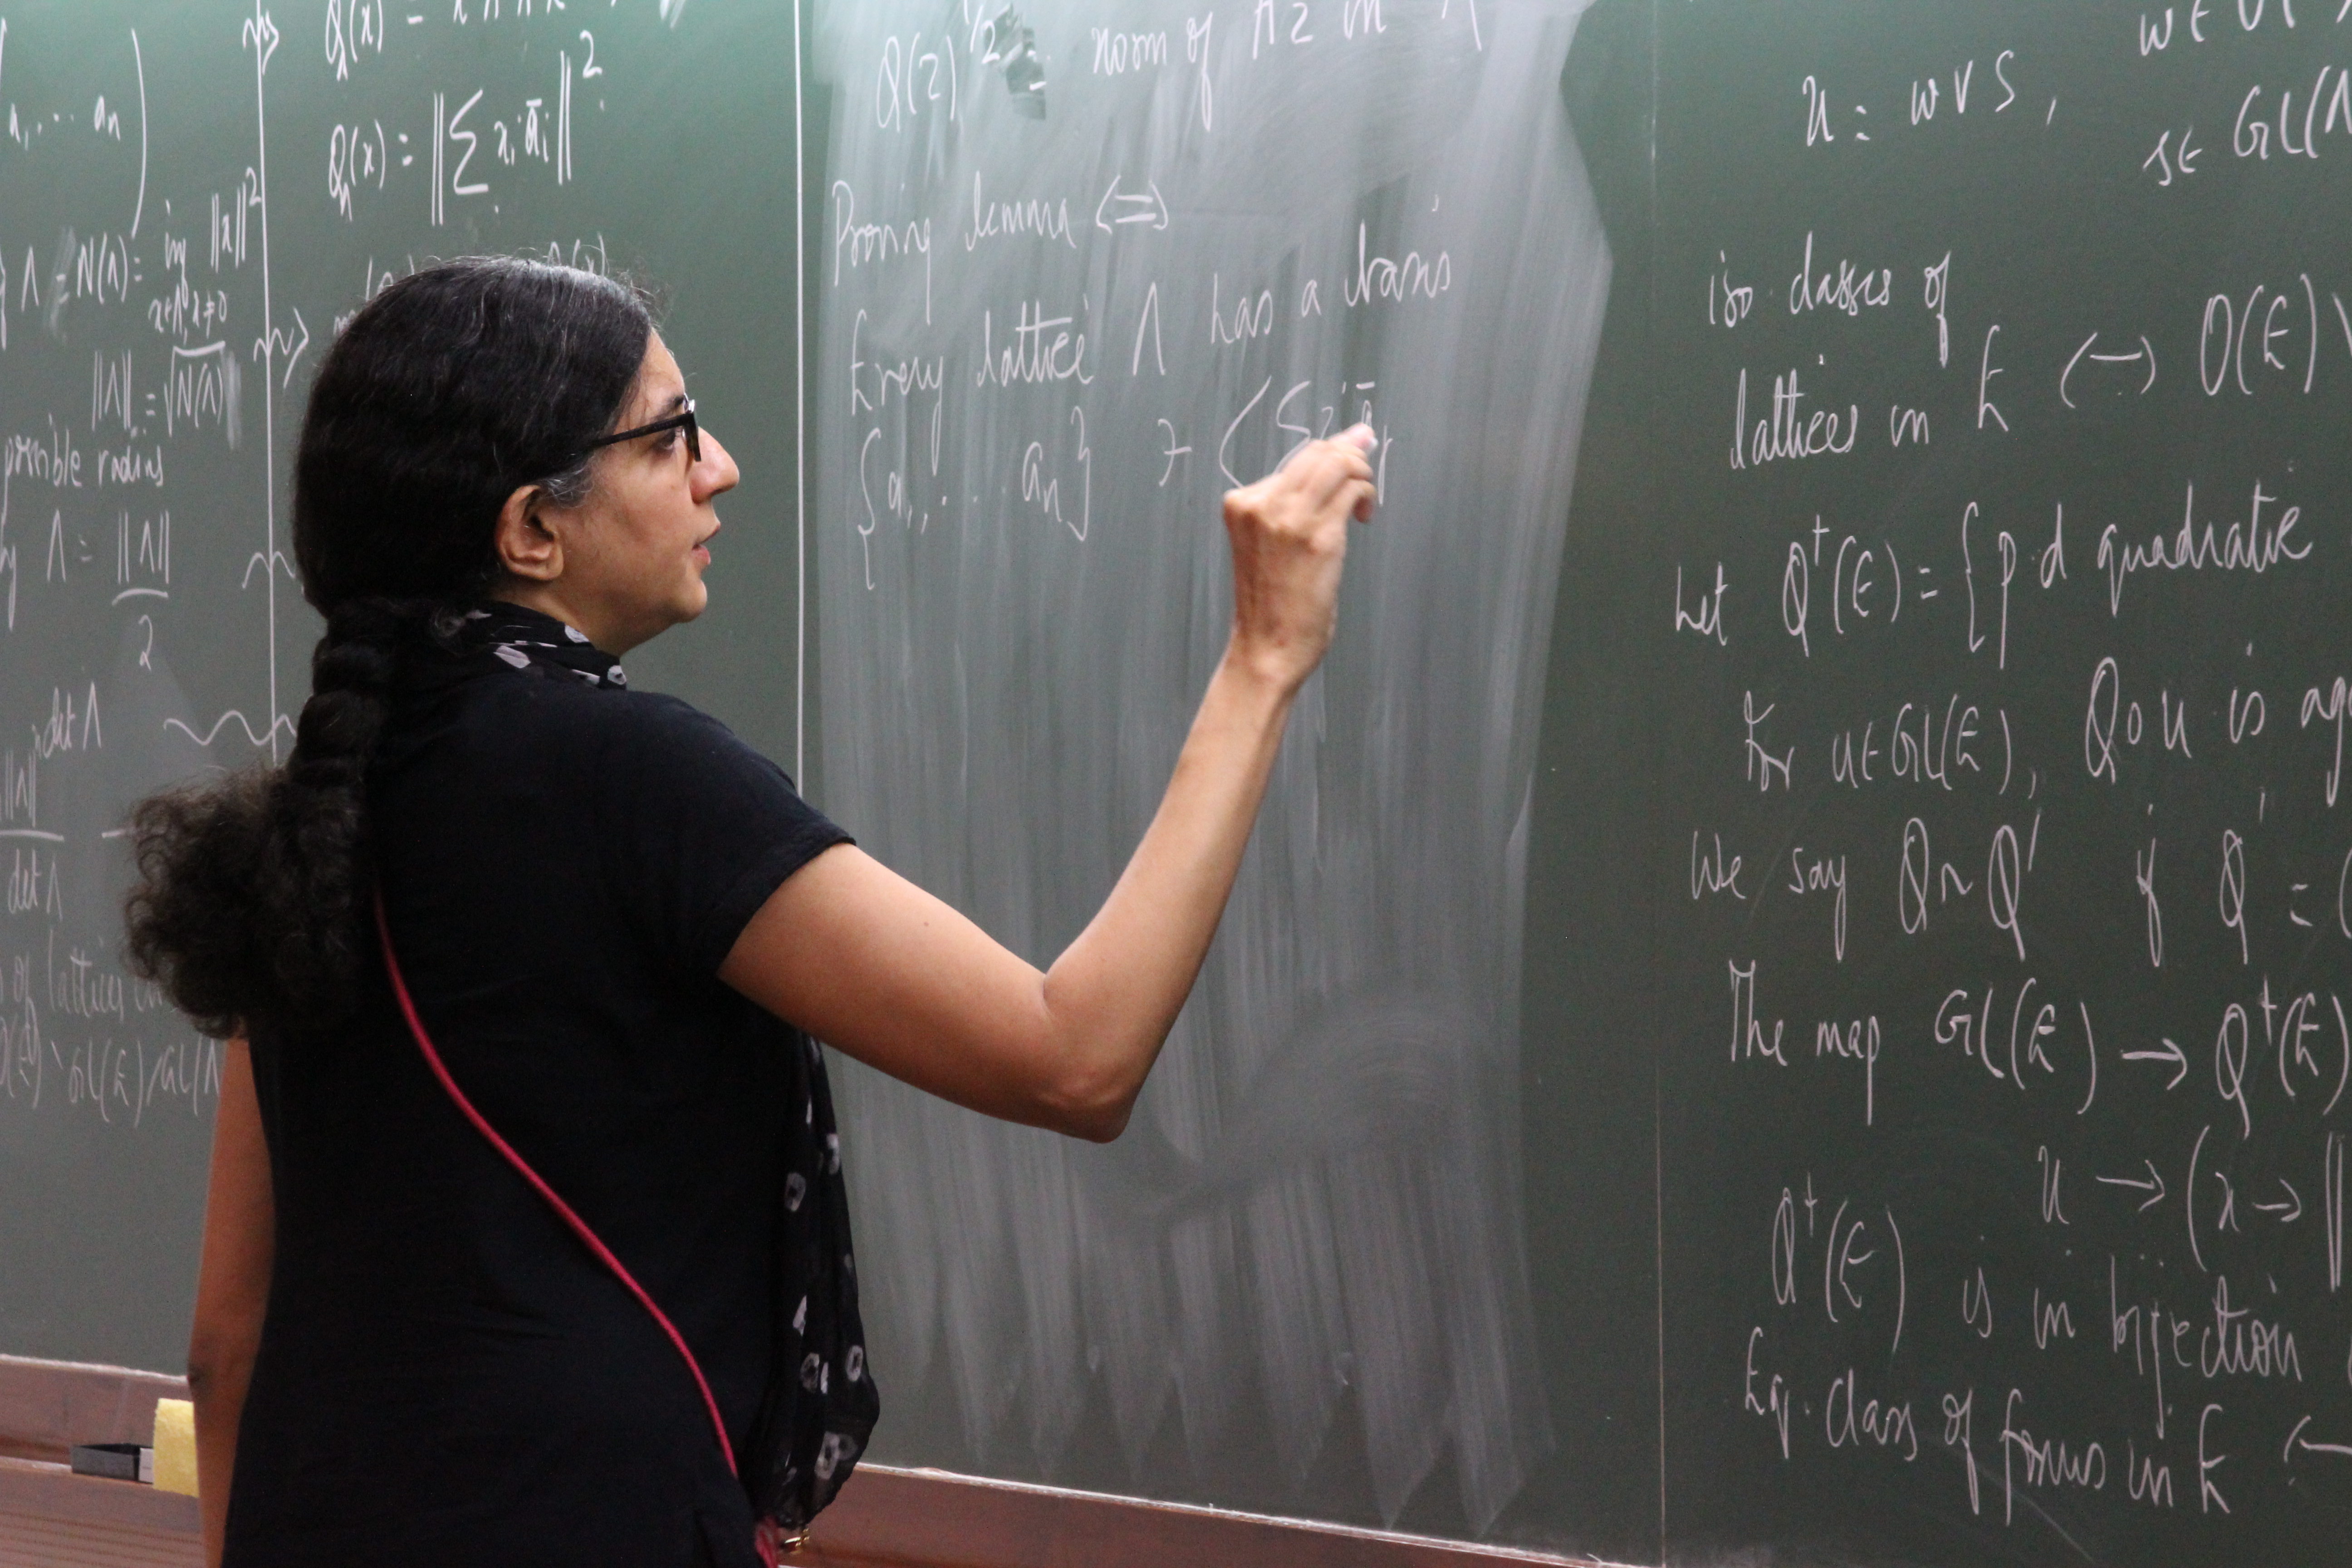 a₁, ... aₙ )
Λ = N(Λ) = inf ||x||²
x∈Λ, x≠0
||Λ|| = √N(Λ)
possible radius
Λ = ||Λ||
2
det Λ
||Λ||
det Λ
of lattices
GL(E)/GL(Λ
Q(x) =
Q(x) = ||Σ xᵢ āᵢ||²
Q(z)^1/2 = norm of Az in Λ
Proving lemma (=)
Every lattice Λ has a basis
{a₁, ... aₙ} ∋
u = w v s,
s∈ GL(Λ
iso. classes of
lattices in E ↔ O(E) \
Let Q⁺(E) = {p.d quadratic
For u∈GL(E), Q∘u is
We say Q ~ Q' if Q' = (
The map GL(E) → Q⁺(E)
u → (x → ||
Q⁺(E) is in bijection
Eq. class of forms in E ↔